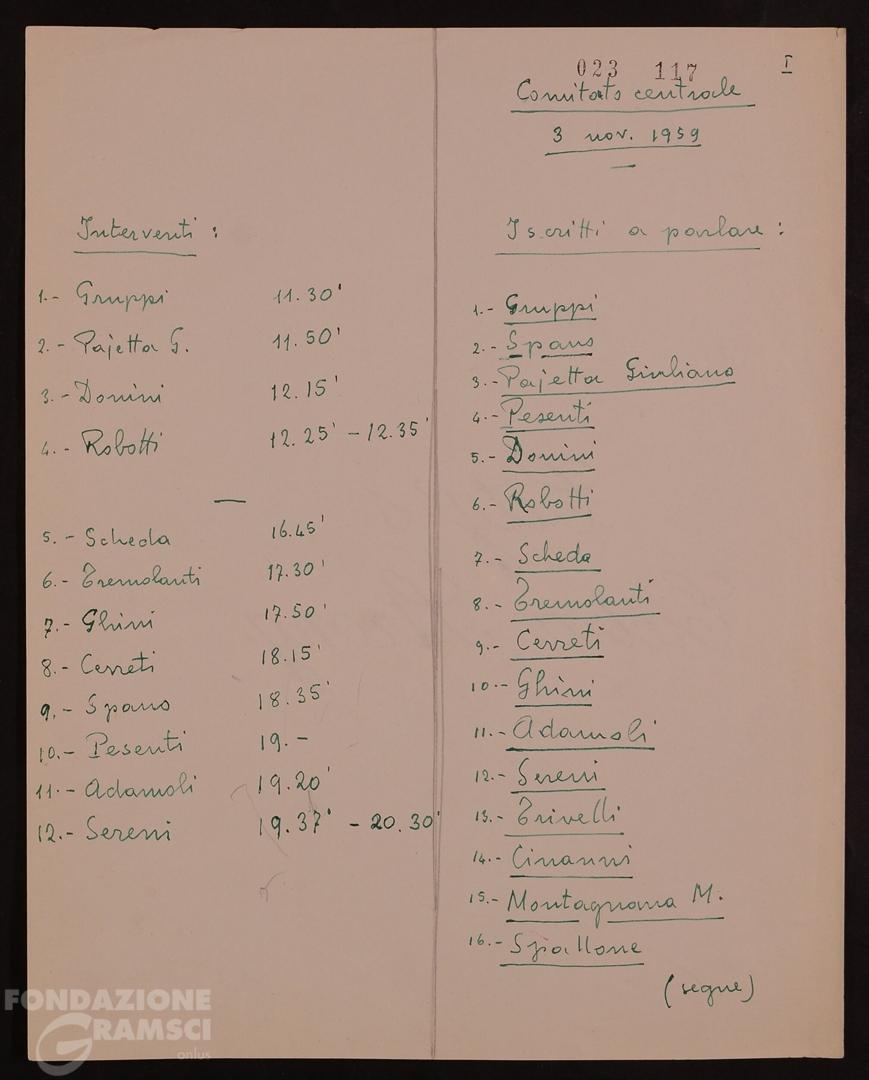 023 117
I
Comitato centrale
3 nov. 1959
Interventi :
1.- Gruppi 11.30'
2.- Pajetta G. 11.50'
3.- Donini 12.15'
4.- Robotti 12.25' - 12.35'
5.- Scheda 16.45'
6.- Tremolanti 17.30'
7.- Ghini 17.50'
8.- Cerreti 18.15'
9.- Spano 18.35'
10.- Pesenti 19.-
11.- Adamoli 19.20'
12.- Sereni 19.37' - 20.30'
Iscritti a parlare :
1.- Gruppi
2.- Spano
3.- Pajetta Giuliano
4.- Pesenti
5.- Donini
6.- Robotti
7.- Scheda
8.- Tremolanti
9.- Cerreti
10.- Ghini
11.- Adamoli
12.- Sereni
13.- Trivelli
14.- Cinanni
15.- Montagnana M.
16.- Spallone
(segue)
FONDAZIONE
GRAMSCI
onlus